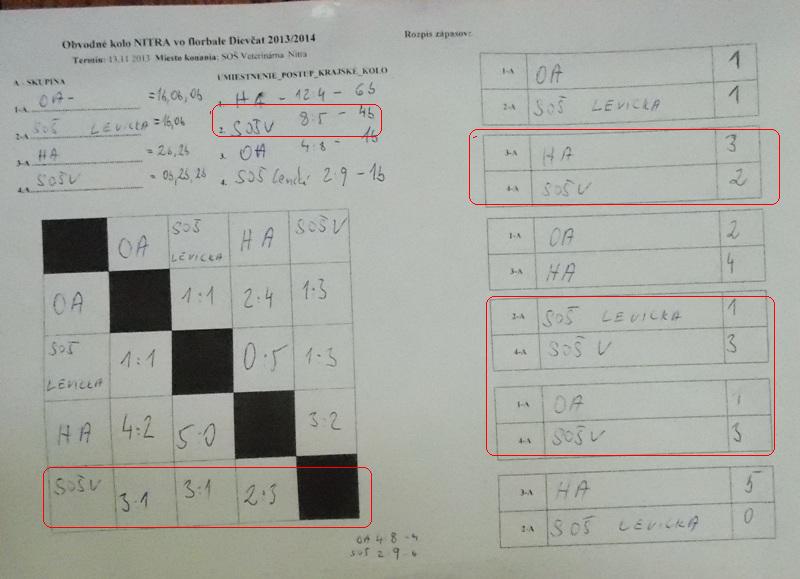 Obvodné kolo NITRA vo florbale Dievčat 2013/2014
Termín: 13.11 2013 Miesto konania: SOŠ Veterinárna Nitra
A - SKUPINA
1-A OA - = 1b, 0b, 0b
2-A SOŠ LEVICKA = 1b, 0b
3-A HA = 2b, 2b
4-A SOŠV = 0b, 2b, 2b
UMIESTNENIE_POSTUP_KRAJSKÉ_KOLO
1. HA - 12:4 - 6b
2. SOŠV 8:5 - 4b
3. OA 4:8 - 1b
4. SOŠ 2:9 - 1b
OA SOŠ LEVICKA HA SOŠV
OA 1:1 2:4 1:3
SOŠ LEVICKA 1:1 0:5 1:3
HA 4:2 5:0 3:2
SOŠV 3:1 3:1 2:3
OA 4:8 -4
SOŠ 2:9
Rozpis zápasov:
1-A OA 1
2-A SOŠ LEVICKA 1
3-A HA 3
4-A SOŠV 2
1-A OA 2
3-A HA 4
2-A SOŠ LEVICKA 1
4-A SOŠ V 3
1-A OA 1
4-A SOŠV 3
3-A HA 5
2-A SOŠ LEVICKA 0